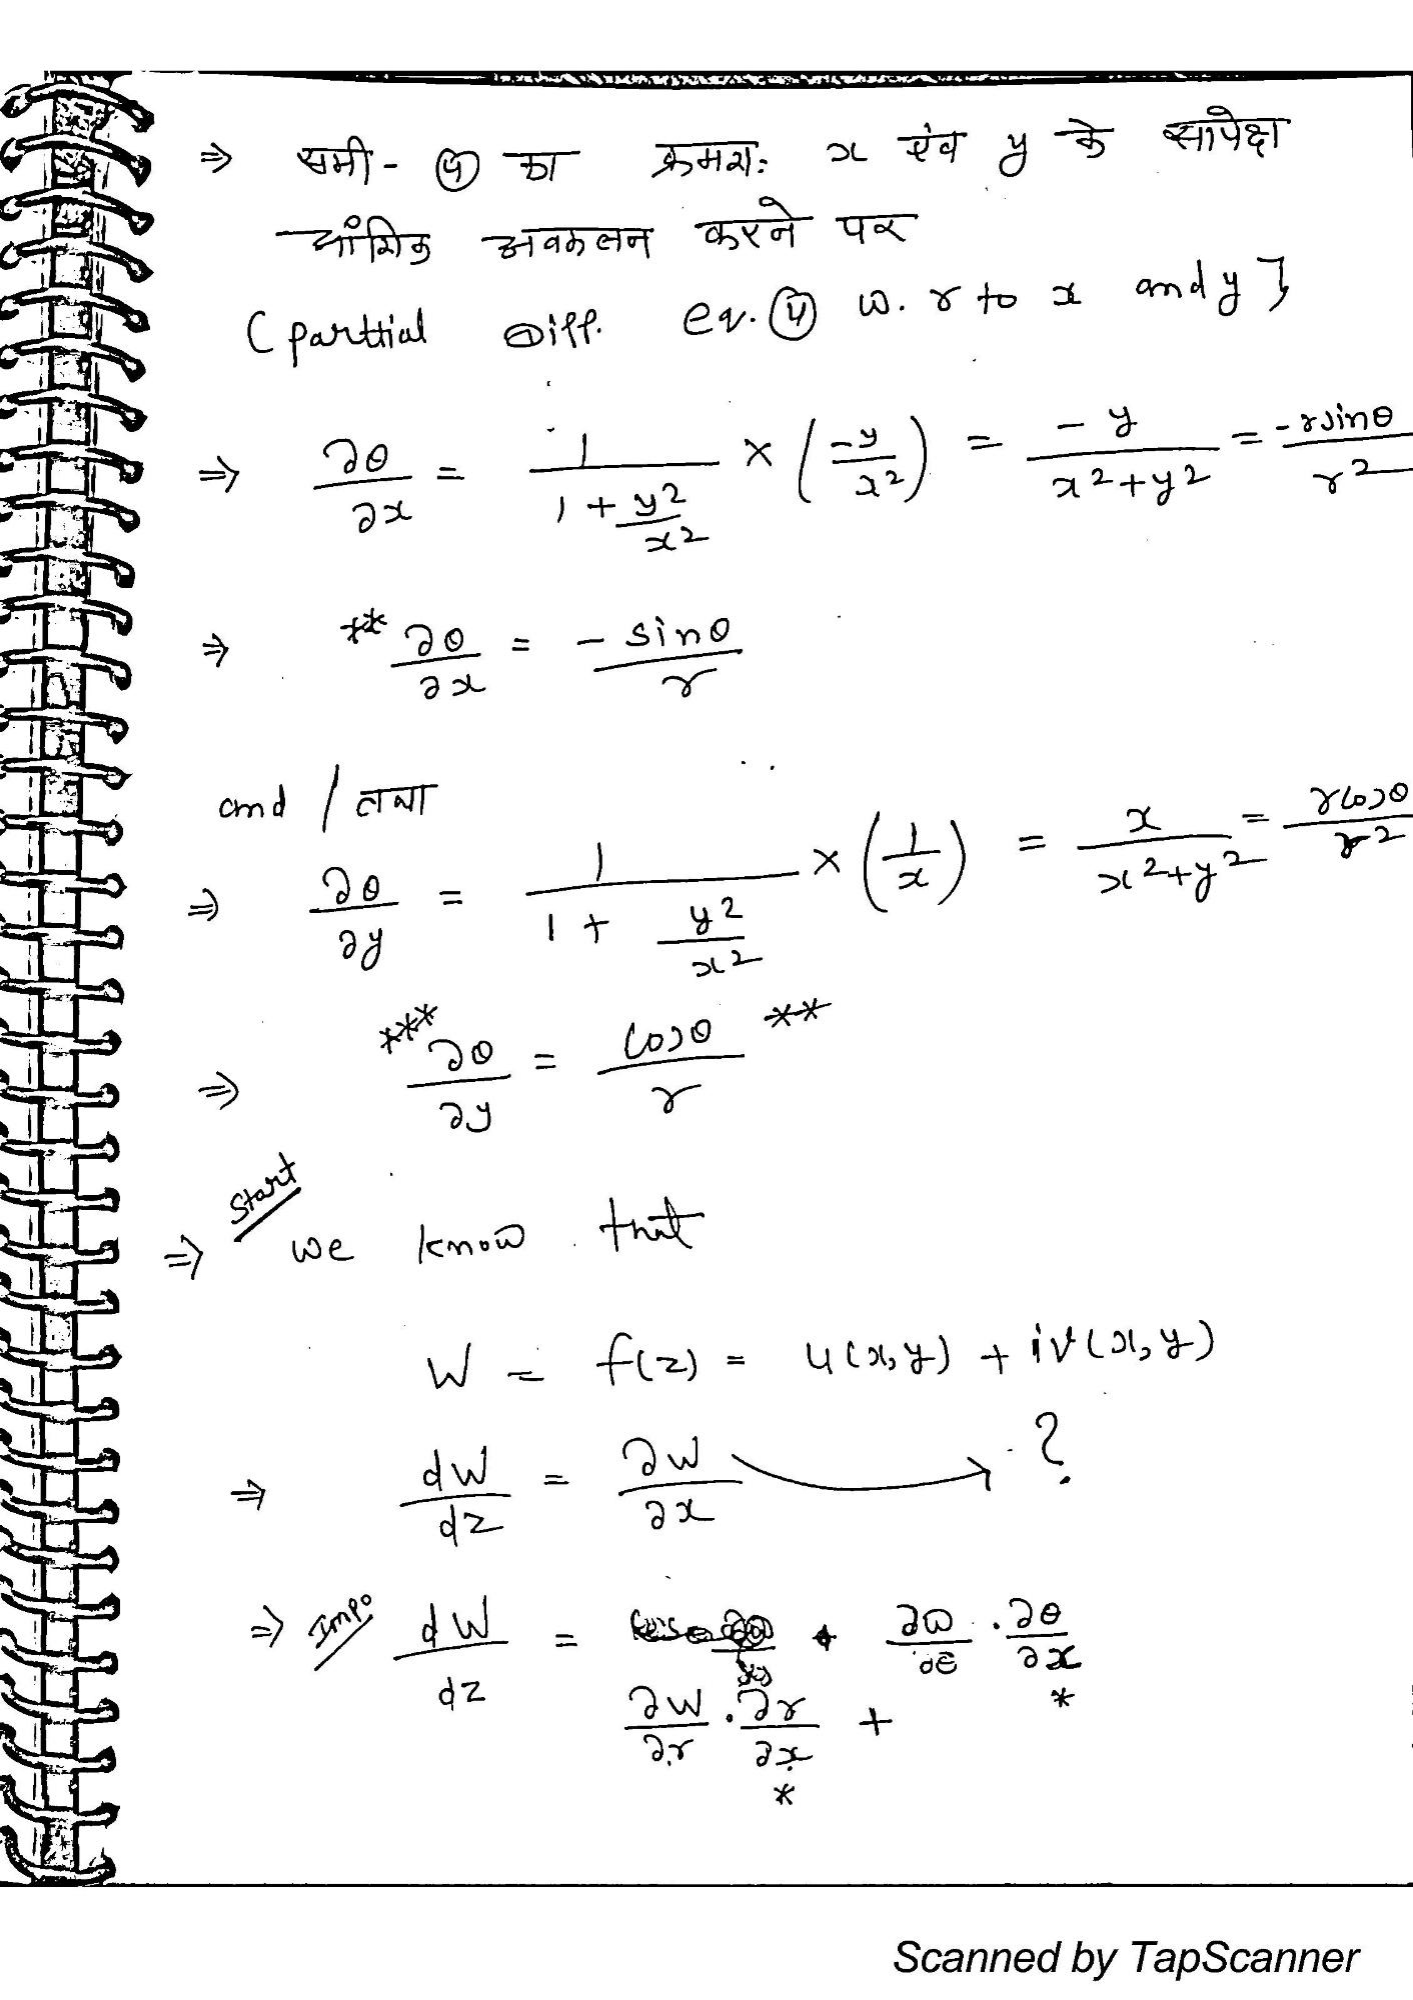 ⇒ समी- ④ का क्रमशः x एंव y के सापेक्ष
आंशिक अवकलन करने पर
(parttial Diff. eq. ④ w. r to x and y}
⇒ ∂θ/∂x = 1/(1 + y²/x²) × (-y/x²) = -y/(x²+y²) = -rsinθ/r²
⇒ ** ∂θ/∂x = -sinθ/r
and / तथा
⇒ ∂θ/∂y = 1/(1 + y²/x²) × (1/x) = x/(x²+y²) = rcosθ/r²
⇒ *** ∂θ/∂y = cosθ/r **
⇒ Start we know that
W = f(z) = u(x,y) + iv(x,y)
⇒ dW/dz = ∂W/∂x → ?
⇒ Impo dW/dz = ∂W/∂r · ∂r/∂x * + ∂W/∂θ · ∂θ/∂x *
Scanned by TapScanner